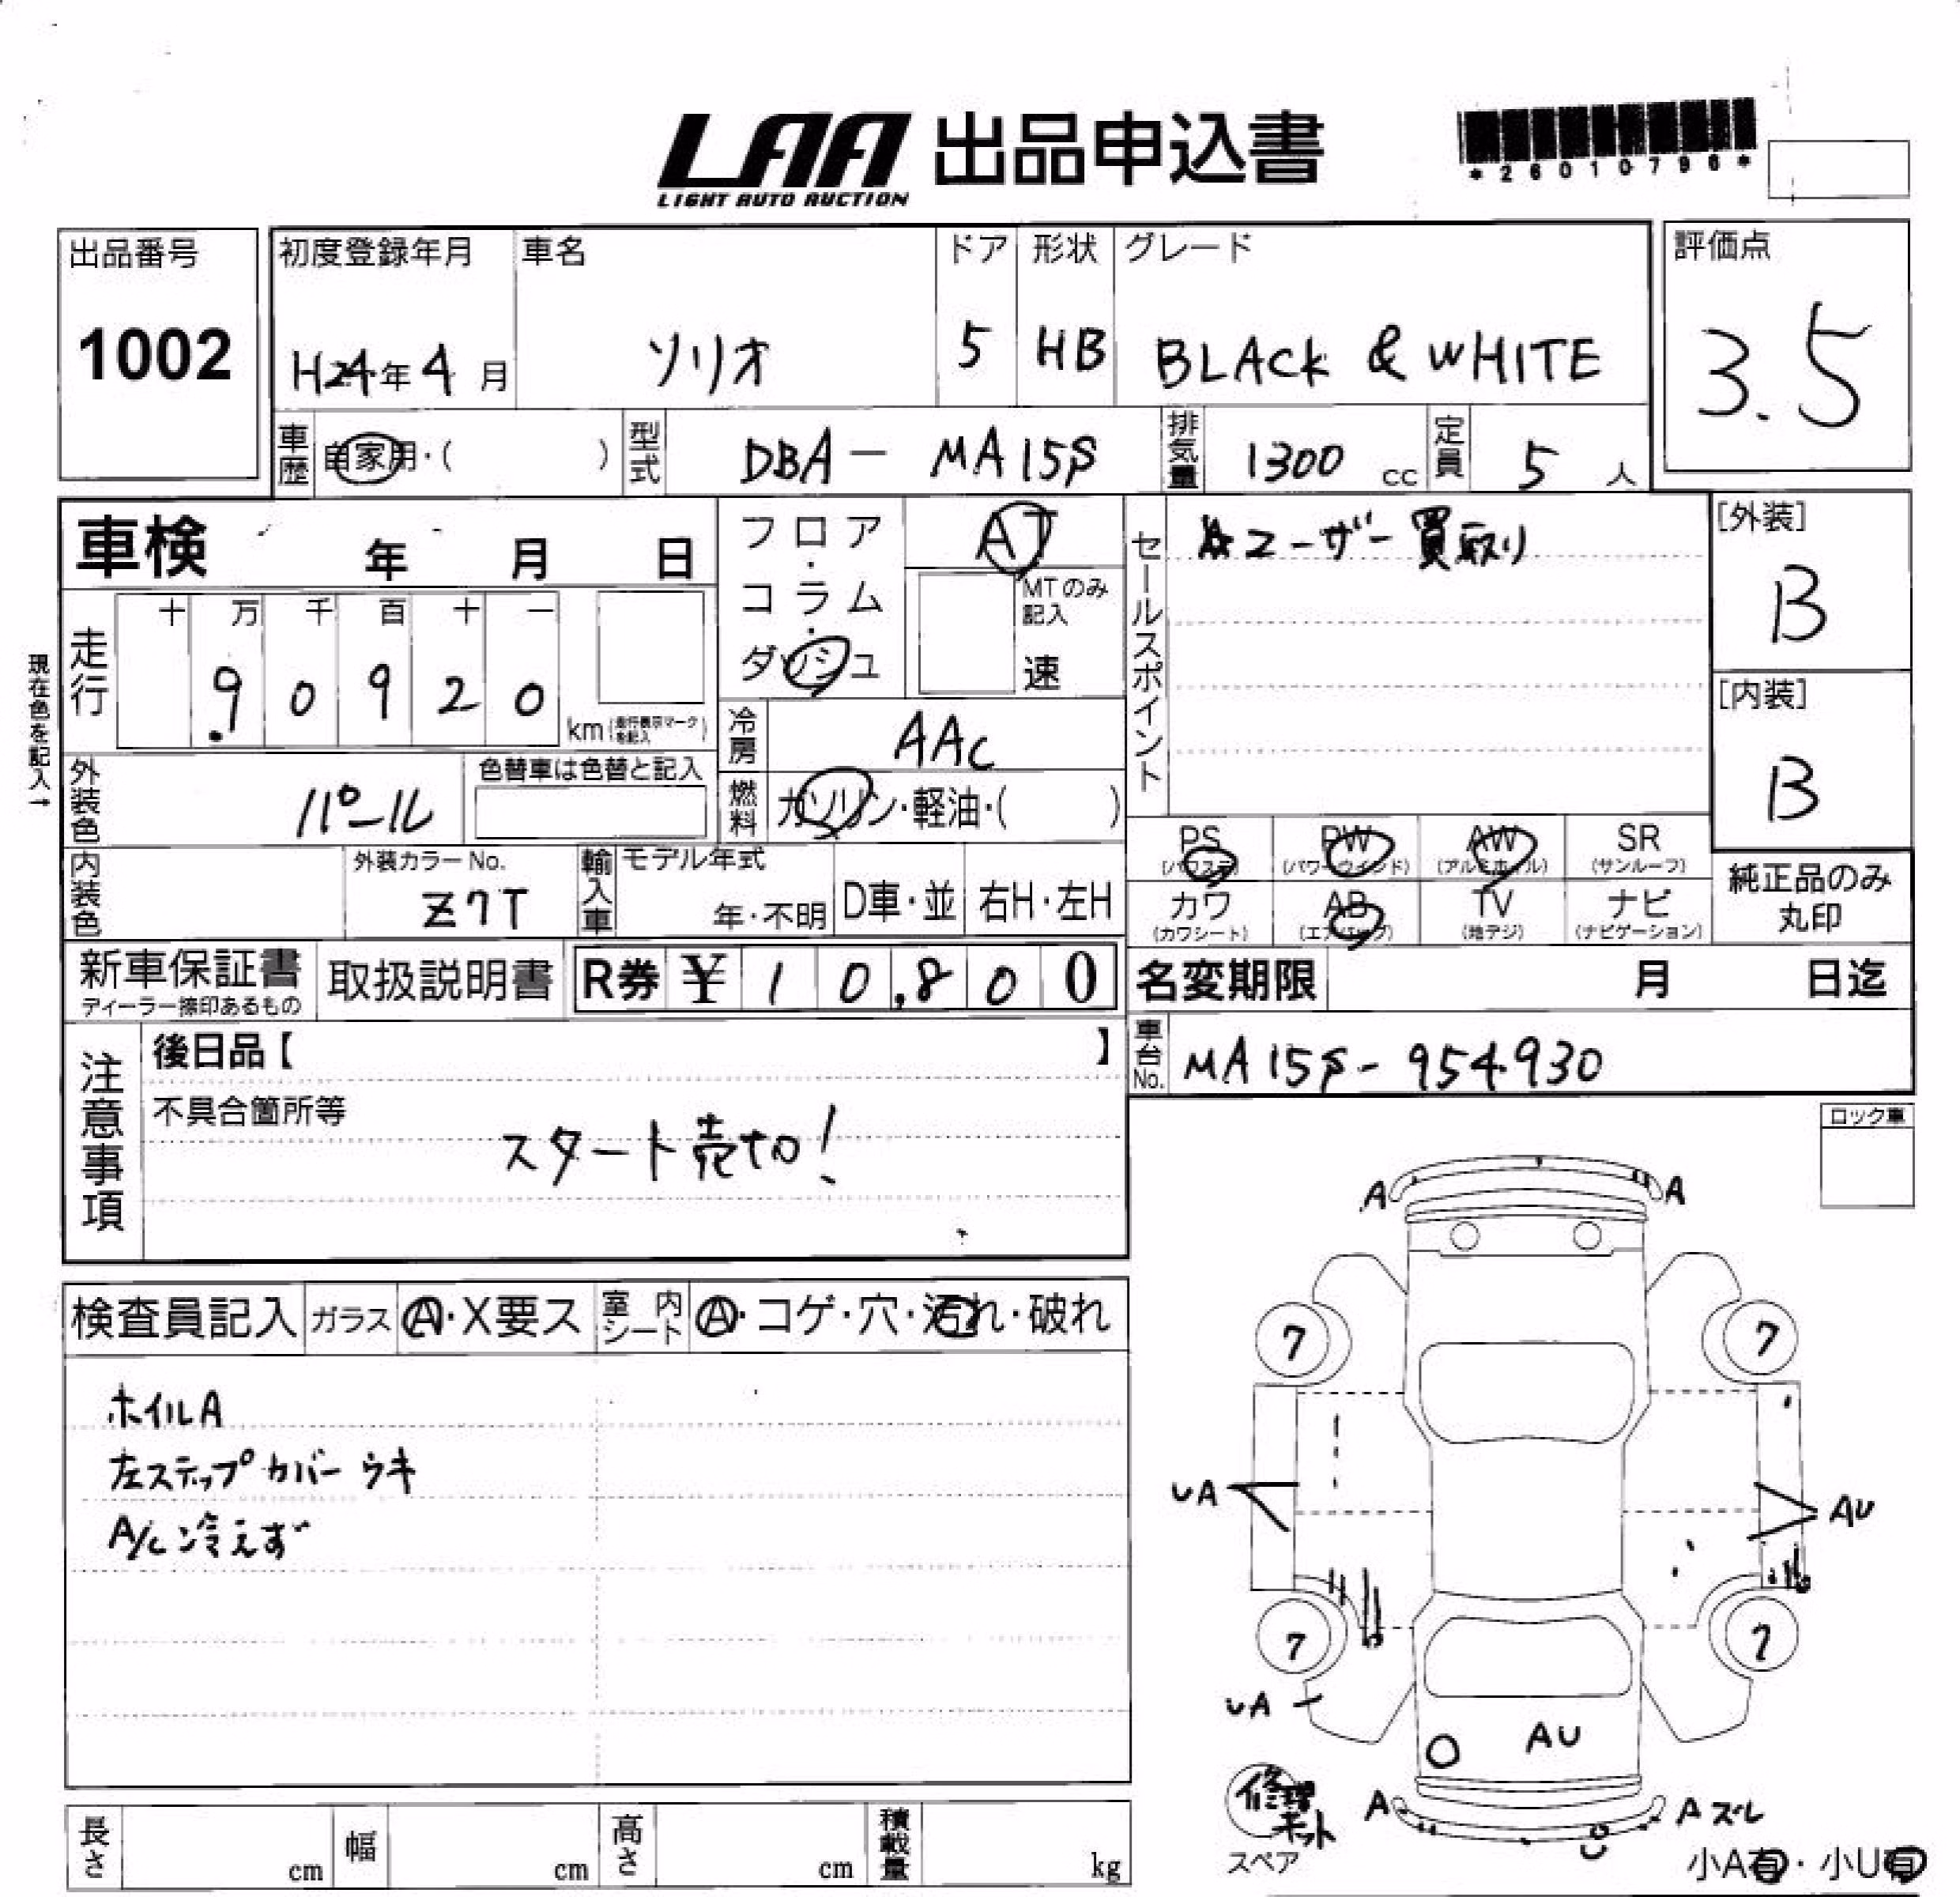 LAA 出品申込書
LIGHT AUTO AUCTION
*26010796*
出品番号
1002
初度登録年月
H24年4月
車名
ソリオ
ドア
5
形状
HB
グレード
BLACK & WHITE
評価点
3.5
車歴
自家用・( )
型式
DBA-MA15S
排気量
1300cc
定員
5人
車検 年 月 日
フロア・コラム・ダッシュ
AT
MTのみ記入
速
セールスポイント
ユーザー買取り
[外装]
B
[内装]
B
現在色を記入→
走行
十 万 千 百 十 一
90920
km(走行表示マークを記入)
冷房
AAC
燃料
ガソリン・軽油・( )
外装色
パール
色替車は色替と記入
内装色
外装カラーNo.
Z7T
輸入車
モデル年式
年・不明
D車・並
右H・左H
PS (パワステ)
PW (パワーウインド)
AW (アルミホイル)
SR (サンルーフ)
カワ (カワシート)
AB (エアバッグ)
TV (地デジ)
ナビ (ナビゲーション)
純正品のみ丸印
新車保証書
ディーラー捺印あるもの
取扱説明書
R券 ¥10,800
名変期限 月 日迄
車台No.
MA15S-954930
注意事項
後日品【 】
不具合箇所等
スタート売切!
ロック車
検査員記入
ガラス
A・X要ス
室内シート
A・コゲ・穴・汚れ・破れ
ホイルA
左ステップカバーウキ
A/C冷えず
A A
7 7
UA AU
7 7
UA
AU
A Aズレ
U
修理キット
スペア
小A有・小U有
長さ cm
幅 cm
高さ cm
積載量 kg